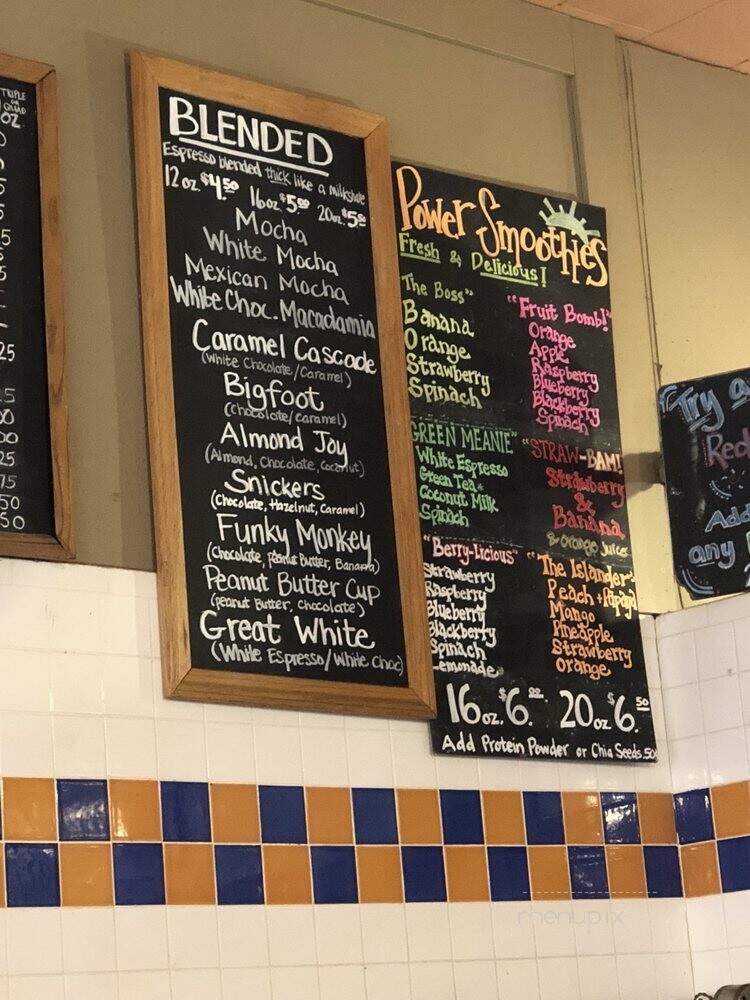 TRIPLE
OZ
BLENDED
Espresso blended thick like a milkshake
12 oz. $4.50 16 oz $5.00 20 oz. $5.50
Mocha
White Mocha
Mexican Mocha
White Choc. Macadamia
Caramel Cascade
(White Chocolate/Caramel)
Bigfoot
(Chocolate/caramel)
Almond Joy
(Almond, Chocolate, Coconut)
Snickers
(Chocolate, Hazelnut, Caramel)
Funky Monkey
(Chocolate, Peanut Butter, Banana)
Peanut Butter Cup
(Peanut Butter, Chocolate)
Great White
(White Espresso/White Choc)
Power Smoothies
Fresh & Delicious!
The Boss"
Banana
Orange
Strawberry
Spinach
"Fruit Bomb!"
Orange
Apple
Raspberry
Blueberry
Blackberry
Spinach
GREEN MEANIE"
White Espresso
Green Tea
Coconut Milk
Spinach
"STRAW-BAM!
Strawberry
&
Banana
& Orange Juice
"Berry-Licious"
Strawberry
Raspberry
Blueberry
Blackberry
Spinach
Lemonade
"The Islander"
Peach + Papaya
Mango
Pineapple
Strawberry
Orange
16 oz. $6.00 20 oz $6.50
Add Protein Powder or Chia Seeds .50
Try a
Red
Add
any
menupix